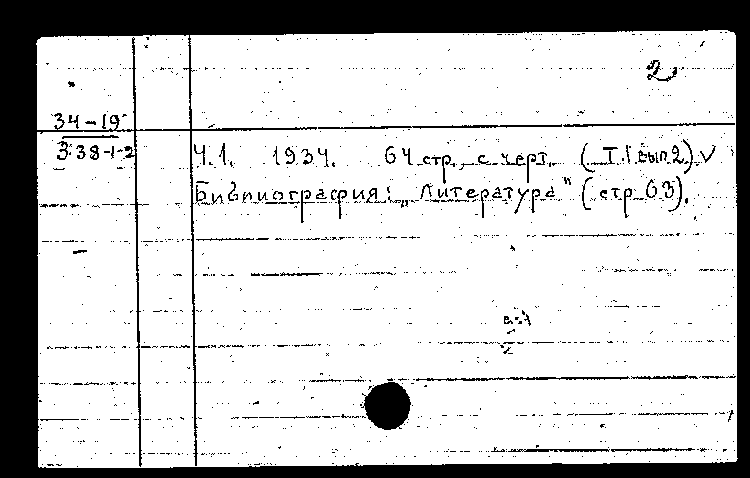 2
34-19
3:38-1-2
Ч.1. 1934. 64 стр., с черт. (Т.1 вып 2) V
Библиография: „Литература" (стр 63).